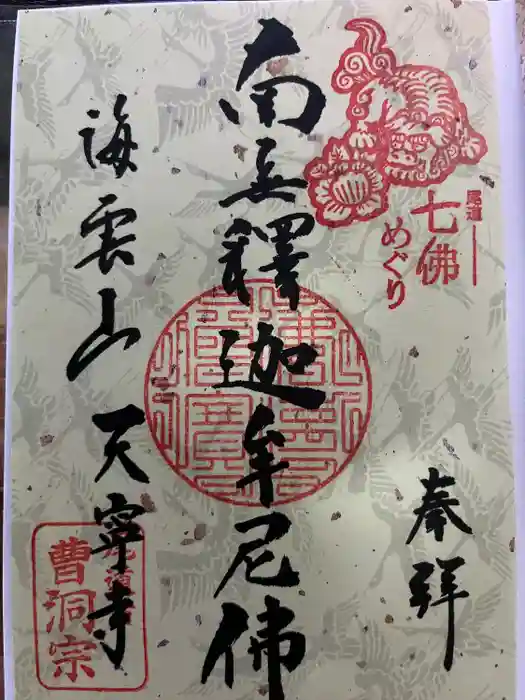 尾道
七佛
めぐり
奉拝
南无釋迦牟尼佛
海雲山天寧寺
尾道
曹洞宗